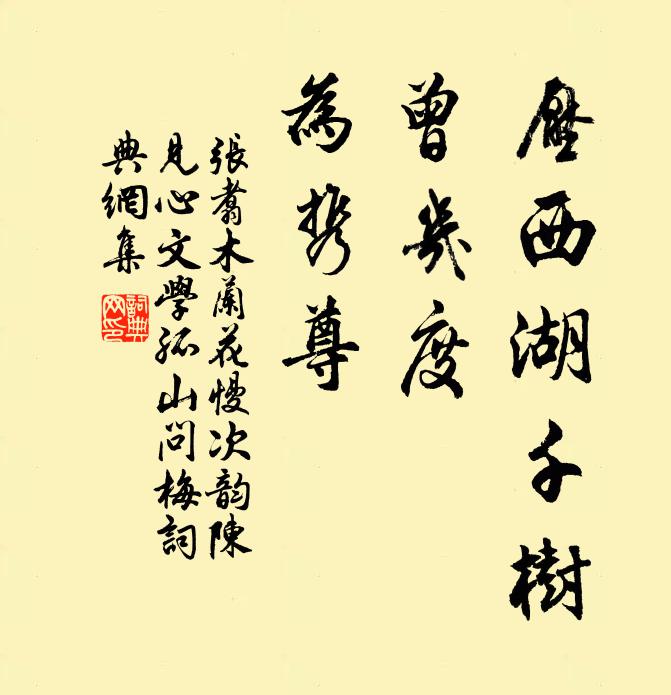 壓西湖千樹
曾幾度
為攜尊
張翥木蘭花慢次韵陳
見心文學孤山問梅詞
典網集
詞典
网印